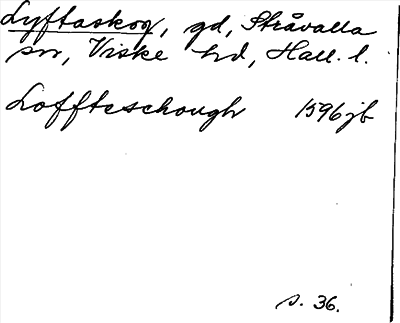 Lyftaskog, gd, Stråvalla
sn, Viske hd, Hall. l.
Loffteschough 1596 jb
s. 36.